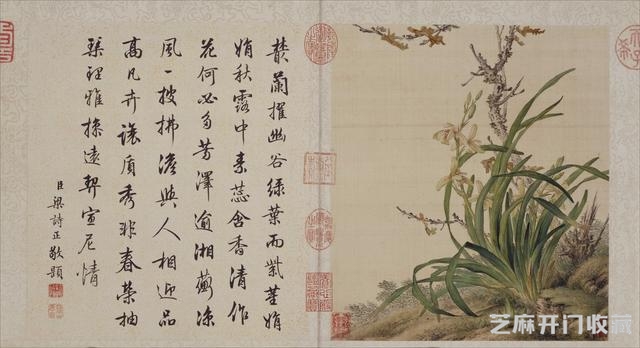 蘭擢幽谷綠葉而紫莖娟
娟秋露中素蕊含香清作
花何必多芳澤逾湘蘅涼
風一披拂澹與人相迎品
高凡卉讓質秀非春榮抽
琴理雅操遠契宣尼情
臣梁詩正敬題
芝麻开门收藏